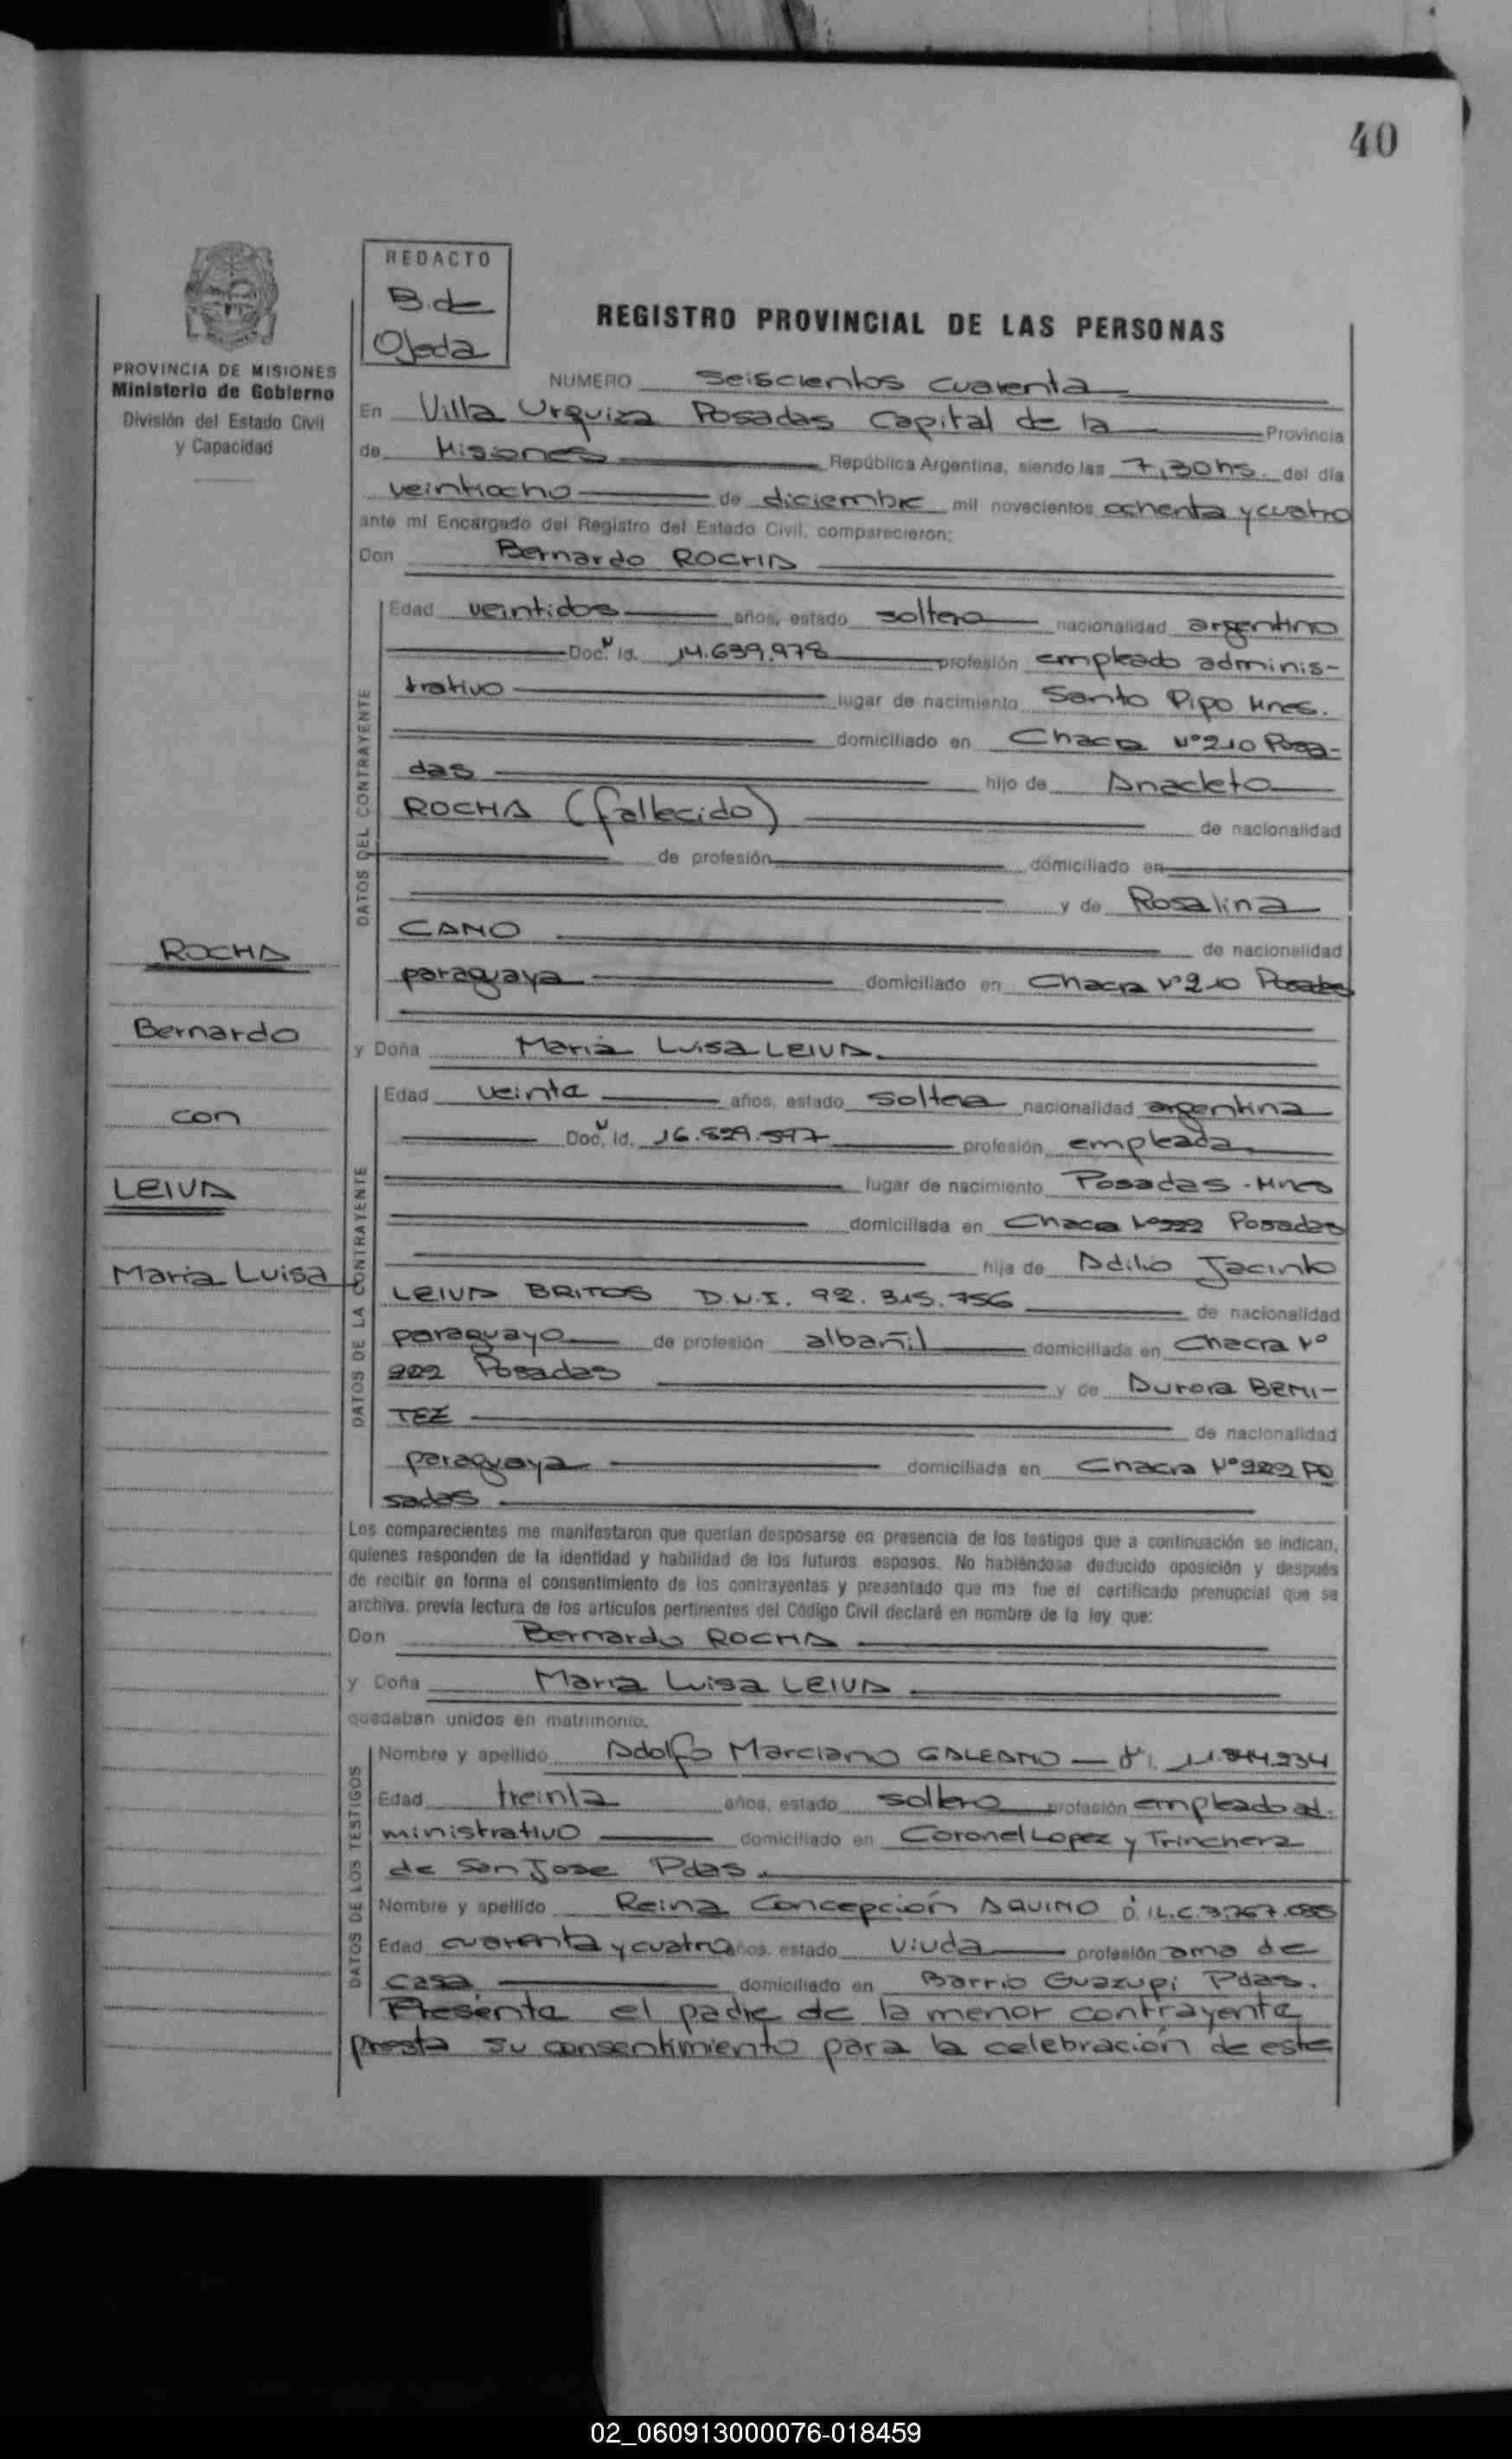 40
REDACTO
B. de
Ojeda
PROVINCIA DE MISIONES
Ministerio de Gobierno
División del Estado Civil
y Capacidad
REGISTRO PROVINCIAL DE LAS PERSONAS
NUMERO seiscientos cuarenta
En Villa Urquiza Posadas Capital de la Provincia
de Misiones República Argentina, siendo las 7,30 hs. del día
veintiocho de diciembre mil novecientos ochenta y cuatro
ante mí Encargado del Registro del Estado Civil, comparecieron:
Don Bernardo ROCHA
DATOS DEL CONTRAYENTE
Edad veintidos años, estado soltero nacionalidad argentino
Doc. Id. 14.639.978 profesión empleado adminis-
trativo lugar de nacimiento Santo Pipo Mnes.
domiciliado en Chacra Nº 210 Posa-
das hijo de Anacleto
ROCHA (fallecido) de nacionalidad
de profesión domiciliado en
y de Rosalina
CANO de nacionalidad
paraguaya domiciliado en Chacra Nº 210 Posadas
ROCHA
Bernardo
con
LEIVA
Maria Luisa
y Doña Maria Luisa LEIVA.
DATOS DE LA CONTRAYENTE
Edad veinte años, estado soltera nacionalidad argentina
Doc. Id. 16.829.597 profesión empleada
lugar de nacimiento Posadas - Mnes
domiciliada en Chacra Nº 222 Posadas
hija de Adilio Jacinto
LEIVA BRITOS D.N.I. 92.315.756 de nacionalidad
paraguayo de profesión albañil domiciliada en Chacra Nº
222 Posadas y de Aurora BENI-
TEZ de nacionalidad
paraguaya domiciliada en Chacra Nº 222 Po
sadas
Los comparecientes me manifestaron que querían desposarse en presencia de los testigos que a continuación se indican,
quienes responden de la identidad y habilidad de los futuros esposos. No habiéndose deducido oposición y después
de recibir en forma el consentimiento de los contrayentes y presentado que me fue el certificado prenupcial que se
archiva, previa lectura de los artículos pertinentes del Código Civil declaré en nombre de la ley que:
Don Bernardo ROCHA
y Doña Maria Luisa LEIVA
quedaban unidos en matrimonio.
DATOS DE LOS TESTIGOS
Nombre y apellido Adolfo Marciano GALEANO 11.844.234
Edad treinta años, estado soltero profesión empleado ad.
ministrativo domiciliado en Coronel Lopez y Trinchera
de San Jose Pdas.
Nombre y apellido Reina Concepción AQUINO L.C. 3.767.085
Edad cuarenta y cuatro años, estado viuda profesión ama de
casa domiciliado en Barrio Guazupi Pdas.
Presente el padre de la menor contrayente
presta su consentimiento para la celebración de este
02_060913000076-018459